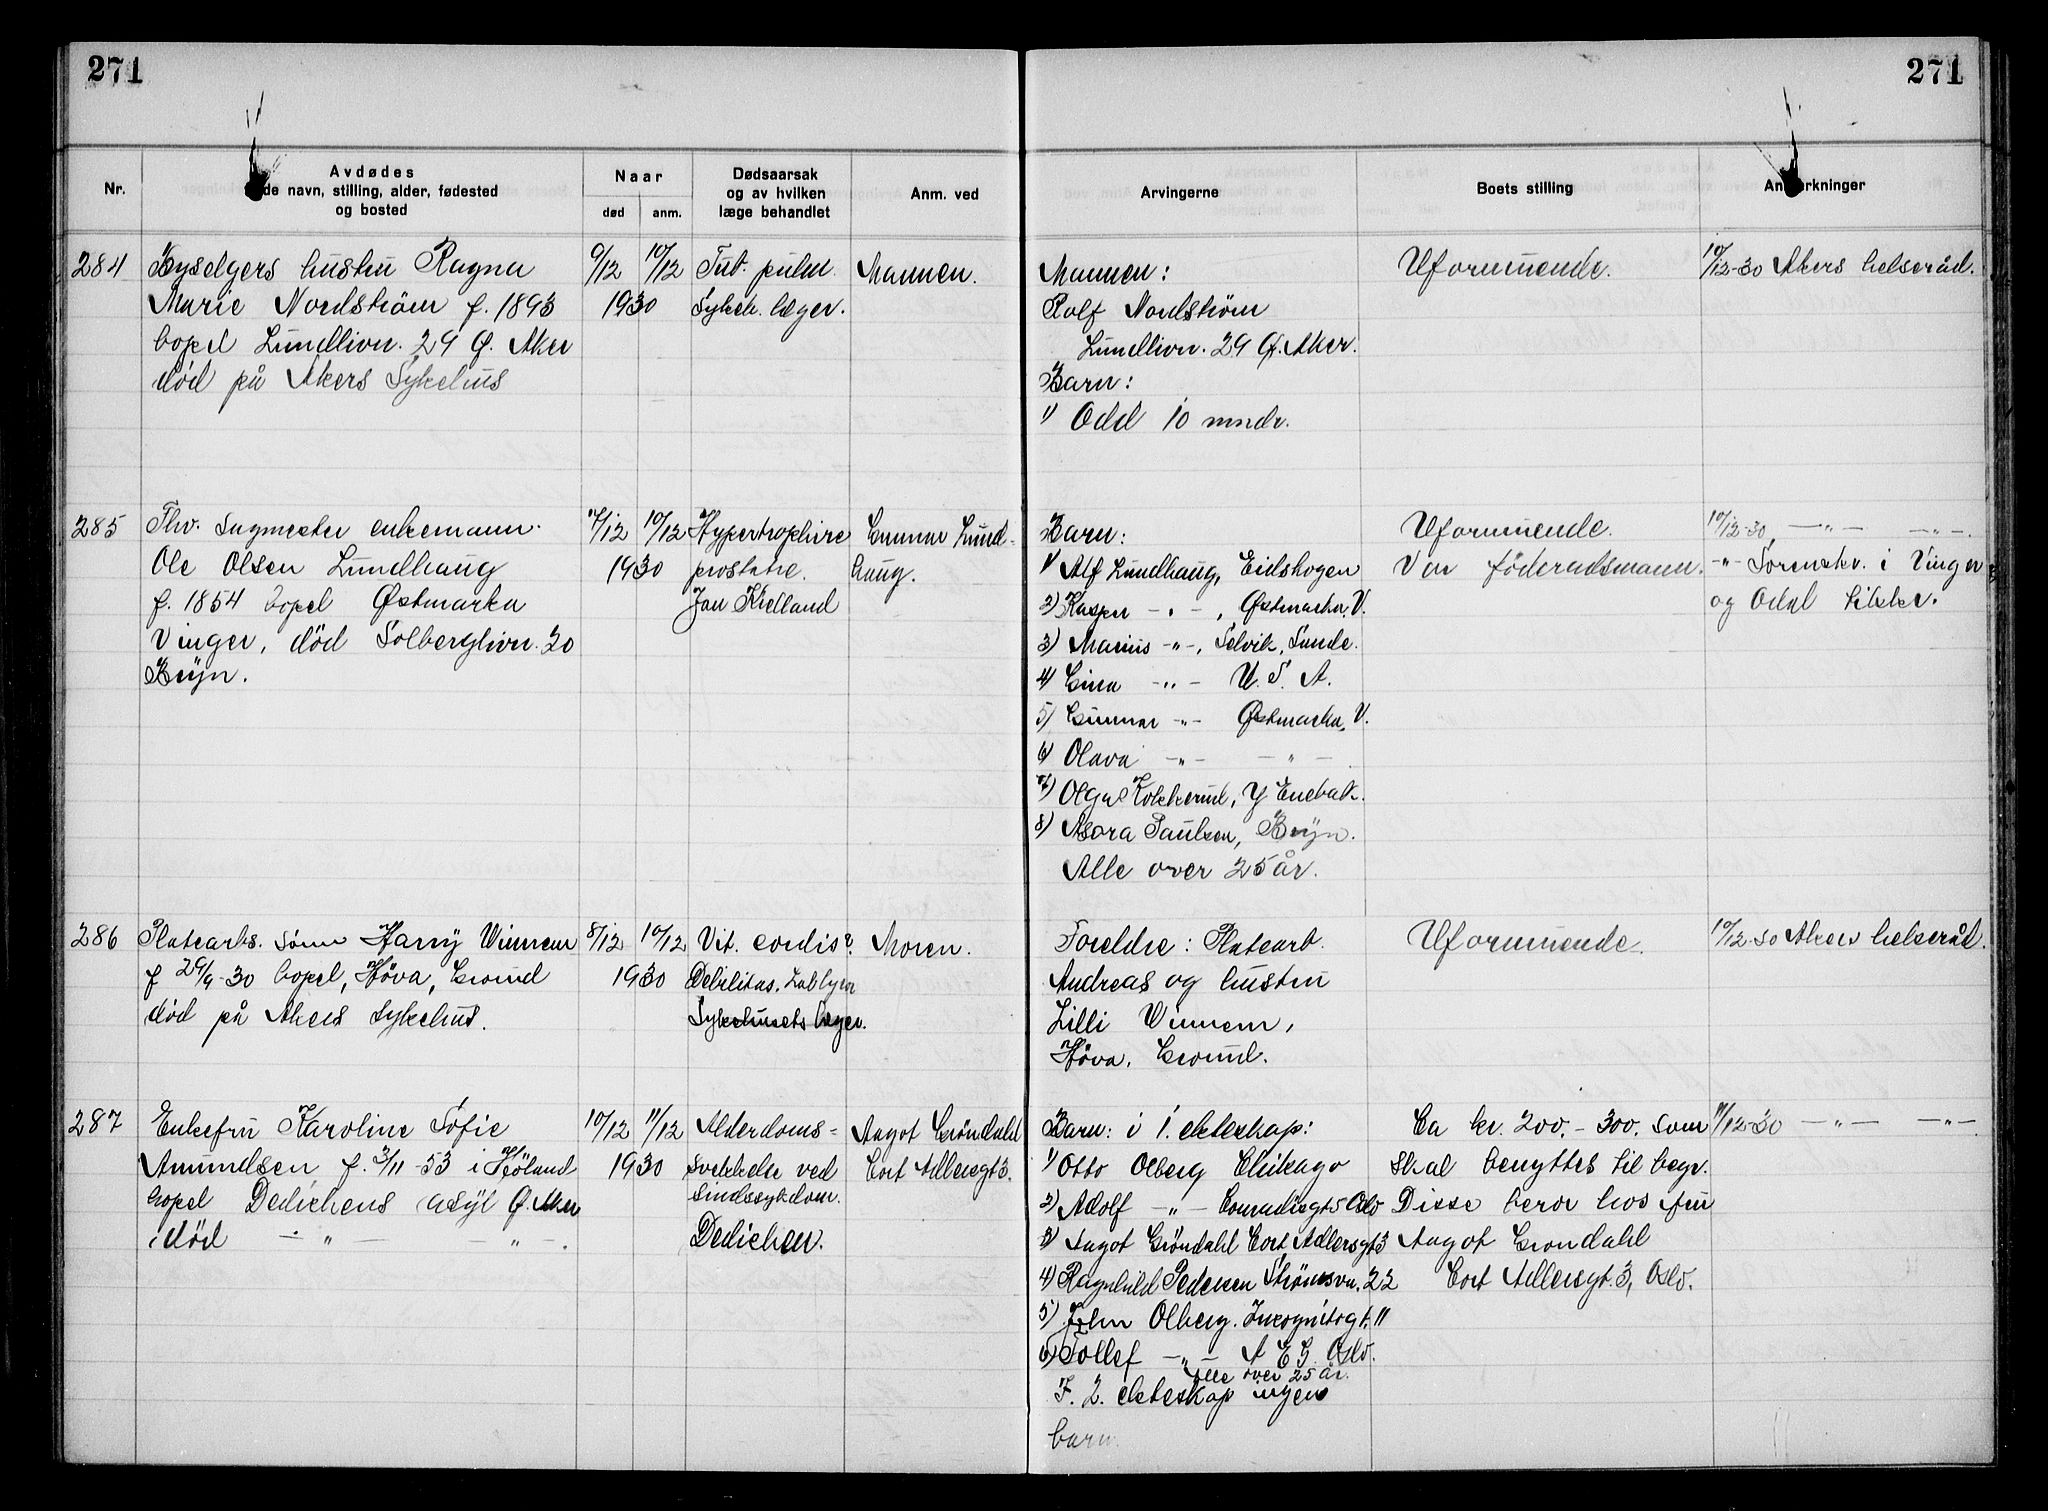 271
271
Nr.
Avdødes
de navn, stilling, alder, fødested
og bosted
Naar
død
anm.
Dødsaarsak
og av hvilken
læge behandlet
Anm. ved
Arvingerne
Boets stilling
Anmerkninger
284
hustru Ragna
Marie Nordstrøm f. 1893
bopel Lundlivn. 29 Ø. Aker
død på Akers Sykehus
9/12
10/12
1930
Tub. pulm.
Sykeh. læger.
Mannen.
Mannen:
Rolf Nordstrøm
Lundlivn. 29 Ø. Aker.
Barn:
1) Odd 10 mndr.
Uformuende.
10/12-30 Akers helseråd.
285
Fhv. Sagmester enkemann
Ole Olsen Lundhaug
f. 1854 bopel Østmarka
Vinger, død Solberglivn. 20
Bryn.
10/12
1930
Hypertrophire
prostate.
Jan Kielland
Gunnar Lund-
haug.
Barn:
1) Alf Lundhaug, Eidskogen
2) Kasper -"-, Østmarka, V.
3) Marius -"-, Selvik, Sande.
4) Gina -"- U. S. A.
5) Gunnar -"- Østmarka, V.
6) Olava -"- -"-
7) Olga Kokkerud, Y Enebak.
8) Asora Paulsen, Bryn.
Alle over 25 år.
Uformuende.
Var föderådsmann.
10/12-30 -"- -"-.
-"- Sorenskr. i Vinger
og Odal tilskr.
286
Platearb. sönn Harry Winnem
f 29/9-30 bopel, Höva, Grorud
død på Akers Sykehus.
8/12
10/12
1930
Vit. cordis?
Debilitas.
Sykehusets læger.
Moren.
Foreldre: Platearb.
Andreas og hustru
Lilli Winnem,
Höva, Grorud.
Uformuende.
10/12-30 Akers helseråd.
287
Enkefru Karoline Sofie
Amundsen f. 3/11-53 i Höland
bopel Dedichens asyl Ø. Aker
død -"- -"-.
10/12
11/12
1930
Alderdoms-
svekkelse ved
sindssykdom.
Dedichen.
Aagot Gröndahl
Cort Adlersgt 3.
Barn: i 1. ekteskap:
1) Otto Olberg Chikago
2) Adolf -"- Conradisgt 5 Oslo
3) Aagot Gröndahl Cort Adlersgt 3
4) Ragnhild Pedersen Strømsvn. 22
5) John Olberg. Inkognitogt. 11
6) Tollef -"- A E G Oslo.
Alle over 25 år.
I. 2. ekteskap ingen
barn.
Ca kr. 200.- 300. som
skal benyttes til begr.
Disse beror hos fru
Aagot Grondahl
Cort Adlersgt. 3, Oslo.
11/12-30 -"- -"-.